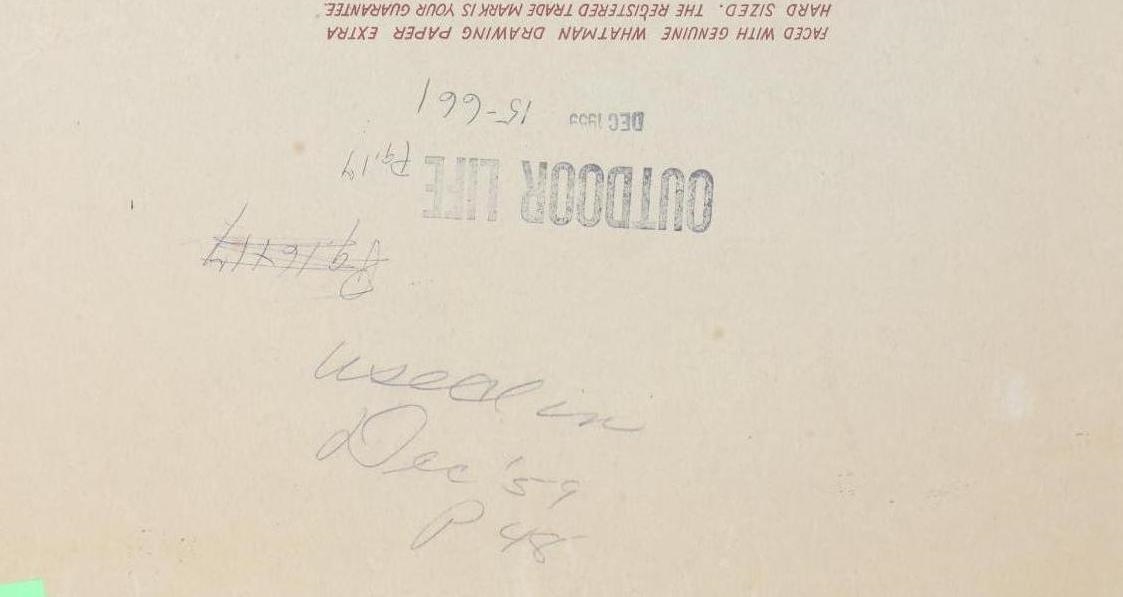 FACED WITH GENUINE WHATMAN DRAWING PAPER EXTRA
HARD SIZED. THE REGISTERED TRADE MARK IS YOUR GUARANTEE.
DEC 1959 15-661
OUTDOOR LIFE Pg. 17
Pg. 16+17
used in
Dec '59
P 48